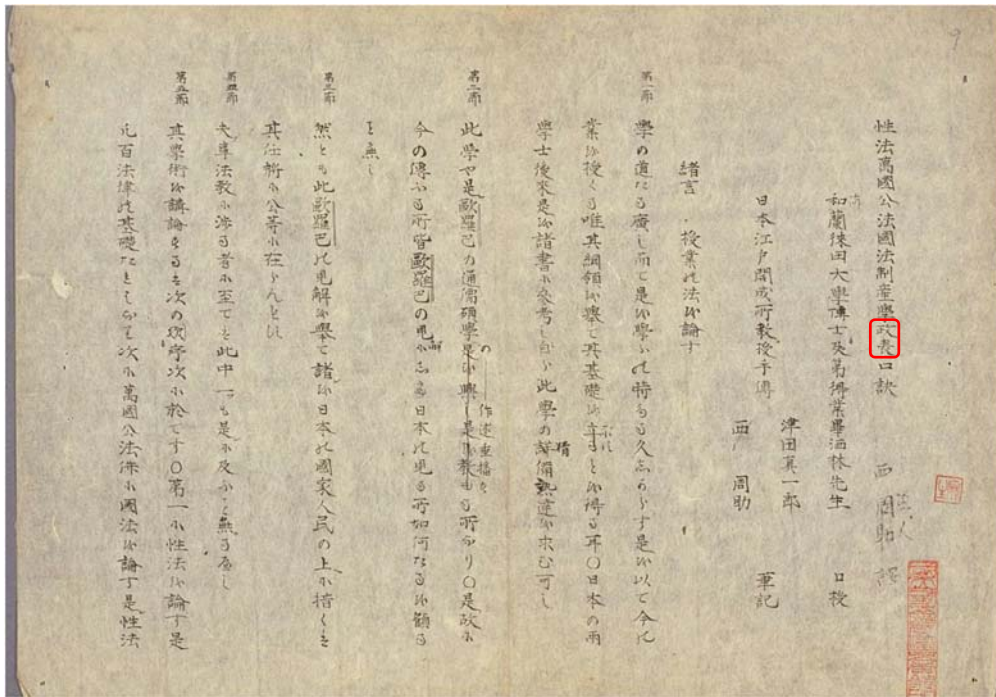 性法萬國公法國法制産學政表口訣
西周助
和蘭徠田大學博士及第得業畢洒林先生 口授
津田真一郎
日本江戸開成所教授手傳
西 周助 筆記
緒言 授業之法を論す
第一節 學の道たる廣し而て是を學ふ之時もる久志からす是を以て今之
業を授くる唯其綱領を擧て其基礎を立るとを得る耳〇日本の兩
學士後來是を諸書に參考し此學の詳備熟達を求む可し
第二節 此學や是歐羅巴の通儒碩學是を興し是を教もる所なり〇是故に
今の傳ふる所皆歐羅巴の見にして日本之見る所如何なるを顧る
と無し
第三節 然とも此歐羅巴之見解を擧て諸を日本之國家人民の上に措くは
其仕術に公等に在らんとに
第四節 夫车法教に渉る者に至ては此中一も是に及ふと無る爲し
第五節 其學術を講論する次の序次に於てす〇第一に性法を論す是
凡百法律之基礎たる次に萬國公法次に國法を論す是性法